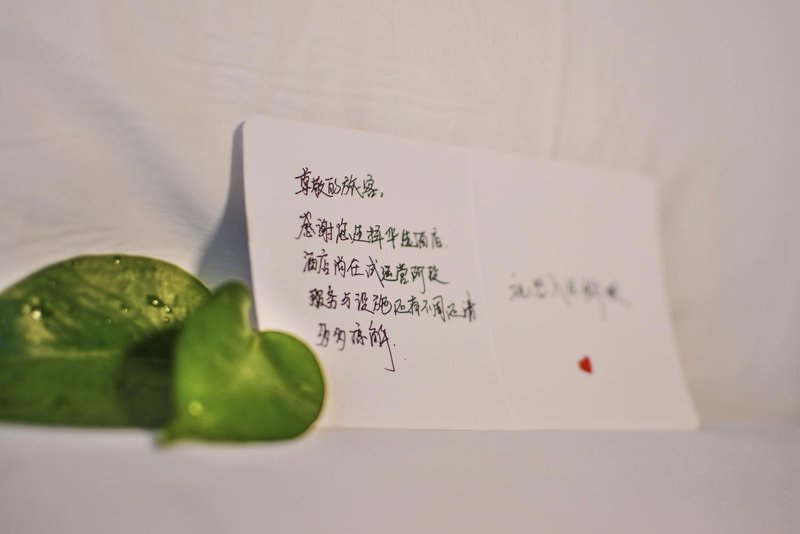 尊敬的旅客，
感谢您选择华住酒店
酒店尚在试运营阶段
服务与设施还有不周还请
多多谅解.
祝您入住愉快